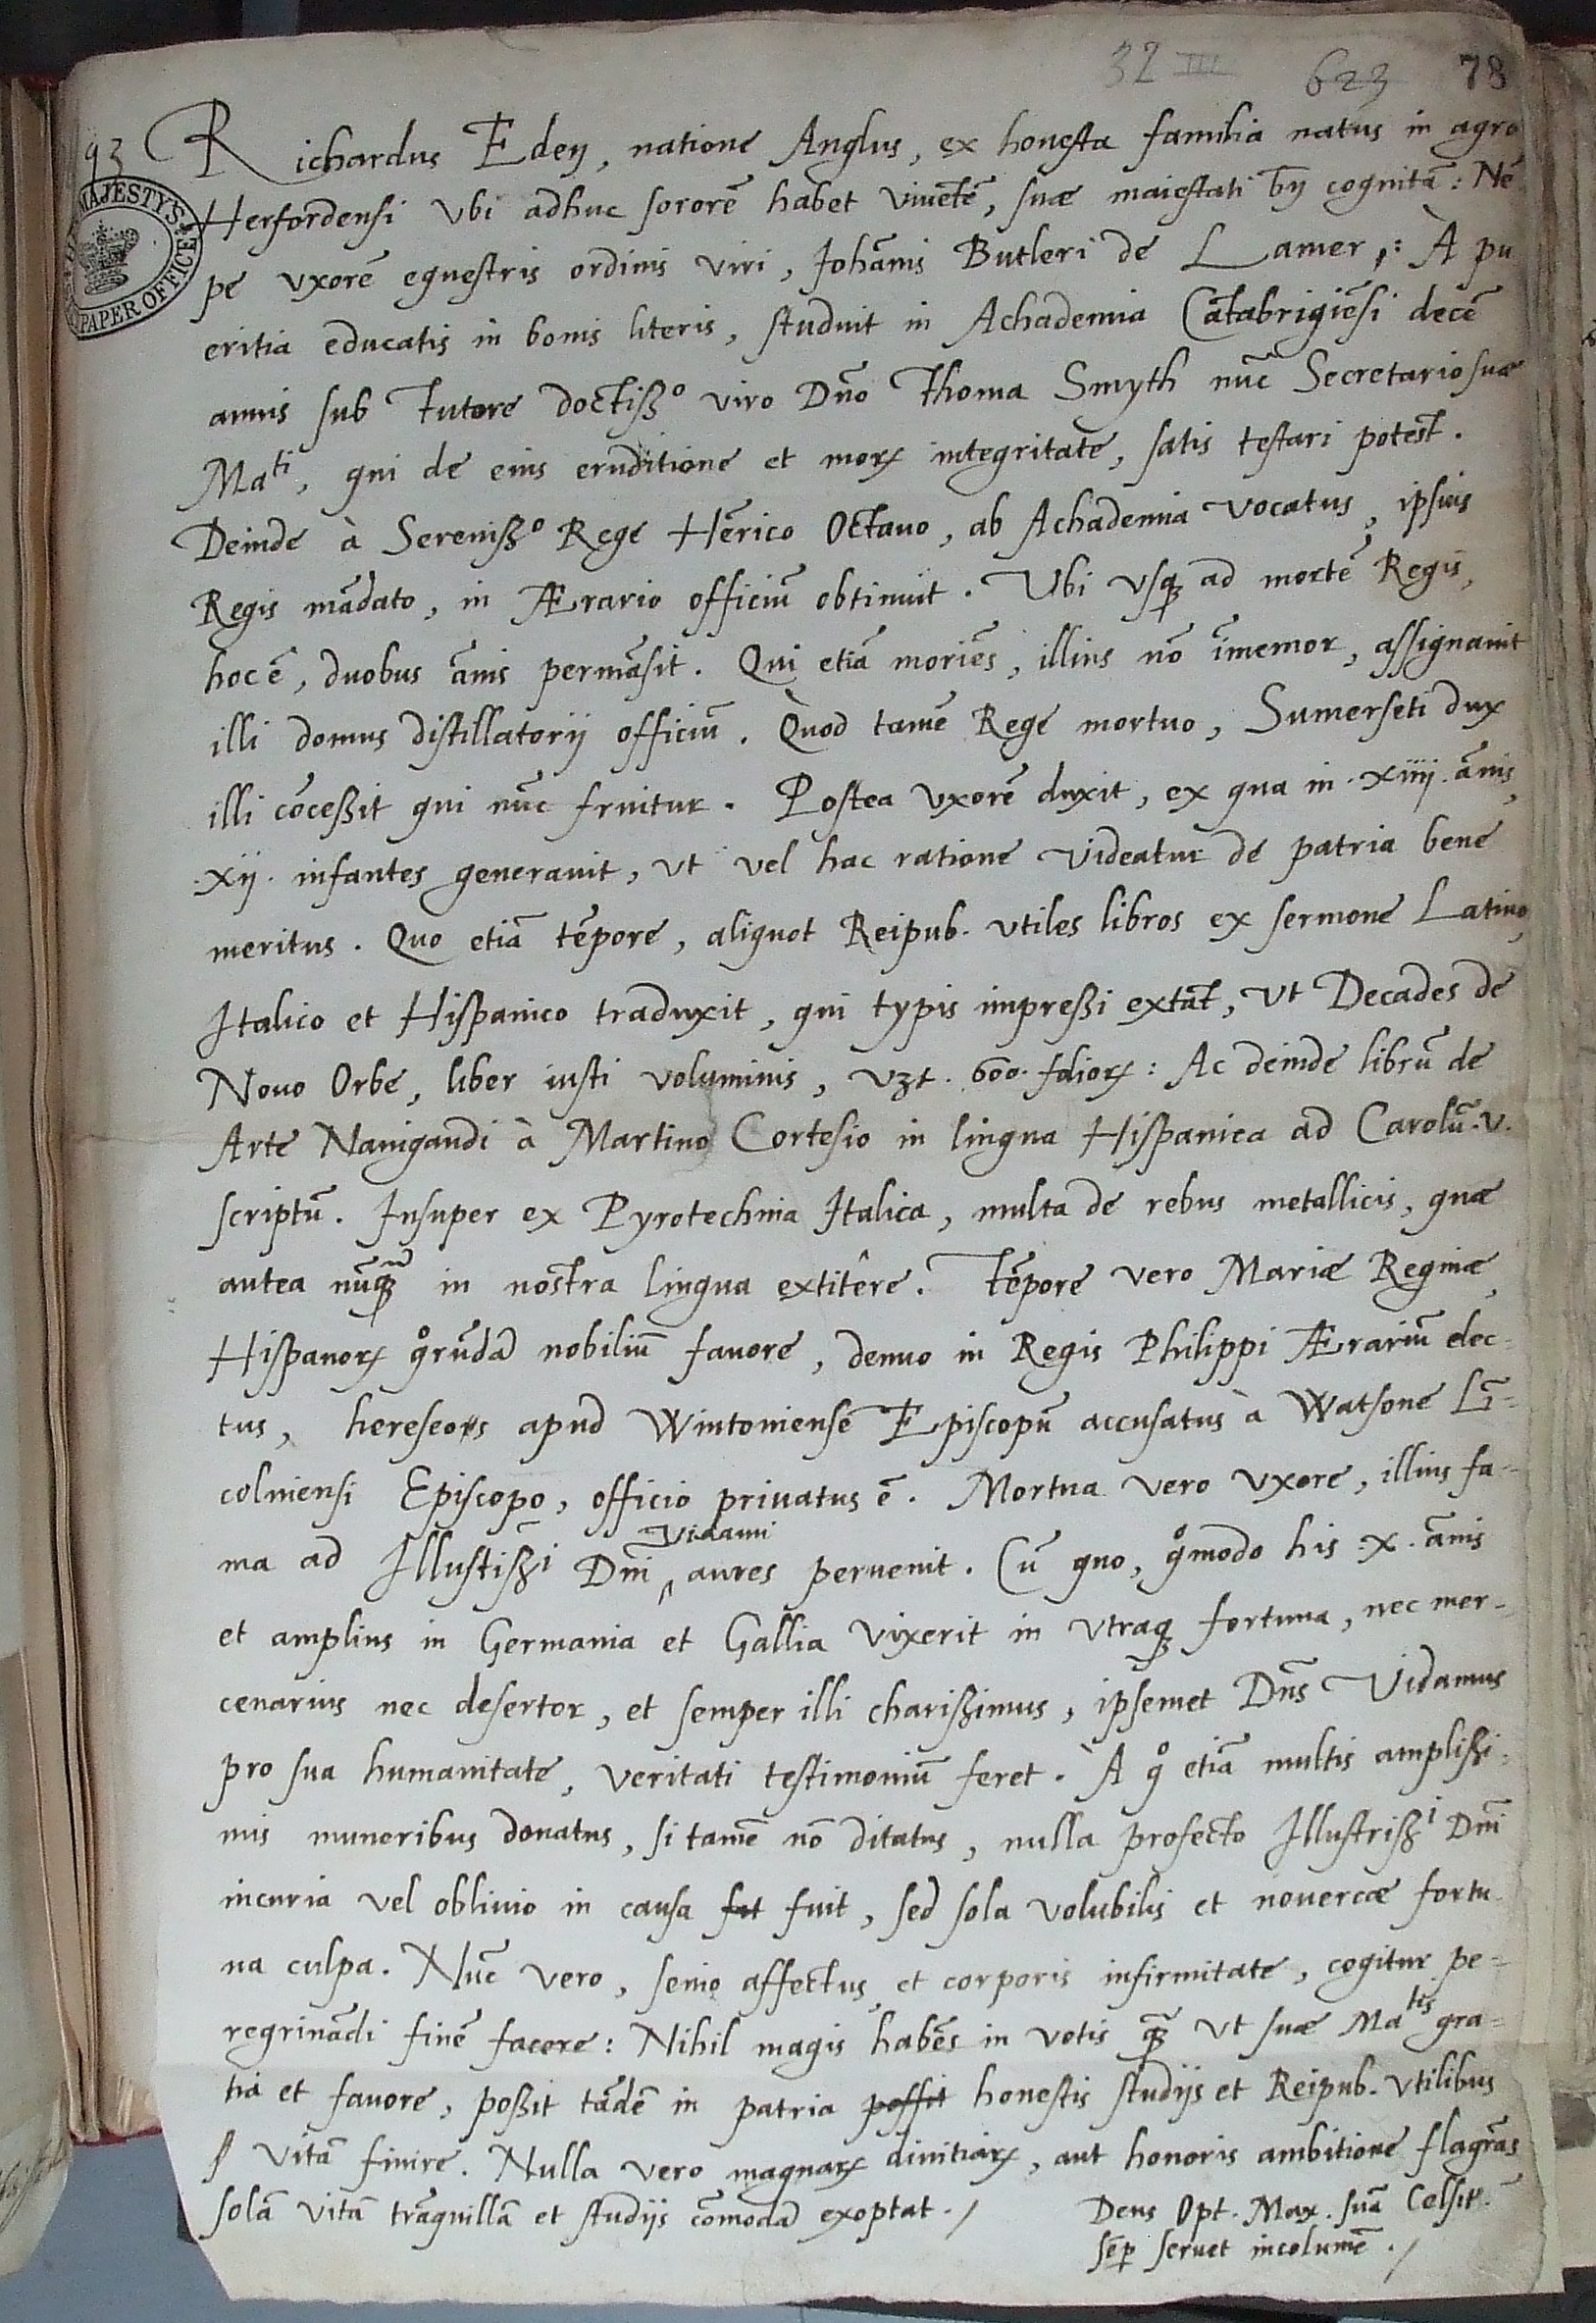 32 III 623 78
93 Richardus Edey, natione Anglus, ex honesta familia natus in agro
HER MAJESTY'S
PAPER OFFICE
Herfordensi vbi adhuc sororē habet viuētē, suæ maiestati bn̄ cognitā: Nē
pe vxorē equestris ordinis viri, Johānis Butleri de Lamer,: À pu
eritia educatis in bonis literis, studuit in Achademia Cātabrigiēsi decē
annis sub tutore doctiss^o viro Dn̄o Thoma Smyth nūc Secretario suæ
Ma^ti, qui de eius eruditione et morꝝ integritate, satis testari potest.
Deinde à Sereniss^o Rege Hērico Octauo, ab Achademia vocatus, ipsius
Regis mādato, in Ærario officiū obtinuit. Vbi vsqꝫ ad mortē Regis,
hoc ē, duobus ānis permāsit. Qui etiā moriēs, illius nō īmemor, assignauit
illi domus distillatorij officiū. Quòd tamē Rege mortuo, Sumerseti dux
illi cōcessit qui nūc fruitur. Postea vxorē duxit, ex qua in .xiiij. ānis,
.xij. infantes generauit, vt vel hac ratione videatur de patria bene
meritus. Quo etiā tēpore, aliquot Reipub. vtiles libros ex sermone Latino,
Italico et Hispanico traduxit, qui typis impressi extāt, vt Decades de
Nouo Orbe, liber iusti voluminis, vzt. 600. folioꝝ: Ac deinde librū de
Arte Nauigandi à Martino Cortesio in lingua Hispanica ad Carolū .v.
scriptū. Insuper ex Pyrotechnia Italica, multa de rebus metallicis, quæ
antea nūqꝫ̄ in nostra lingua extitêre. Tēpore vero Mariæ Reginæ,
Hispanoꝝ qºrūdā nobiliū fauore, denuo in Regis Philippi Ærariū elec-
tus, hereseos apud Wintoniensē Episcopū accusatus à Watsone Lī-
colniensi Episcopo, officio priuatus ē. Mortua vero vxore, illius fa-
ma ad Illustiss^i Dn̄i ‸ Vidami aures peruenit. Cū quo, qºmodo his .x. ānis
et amplius in Germania et Gallia vixerit in vtraqꝫ fortuna, nec mer-
cenarius nec desertor, et semper illi charissimus, ipsemet Dn̄s Vidamus
pro sua humanitate, veritati testimoniū feret. À qº etiā multis amplissi-
mis muneribus donatus, si tamē nō ditatus, nulla profecto Illustriss^i Dn̄i
incuria vel obliuio in causa fut fuit, sed sola volubilis et nouercæ fortu-
na culpa. Nūc vero, senio affectus et corporis infirmitate, cogitur pe-
regrinādi finē facere: Nihil magis habēs in votis qꝫ̄ vt suæ Ma^tis gra-
tia et fauore, possit tādē in patria possit honestis studijs et Reipub. vtilibus
vitā finire. Nulla vero magnaꝝ diuitiaꝝ, aut honoris ambitione flagrās
solā vitā trāquillā et studijs cōmodā exoptat./
Deus Opt. Max. suā Celsit.
sēꝑ seruet incolumē./